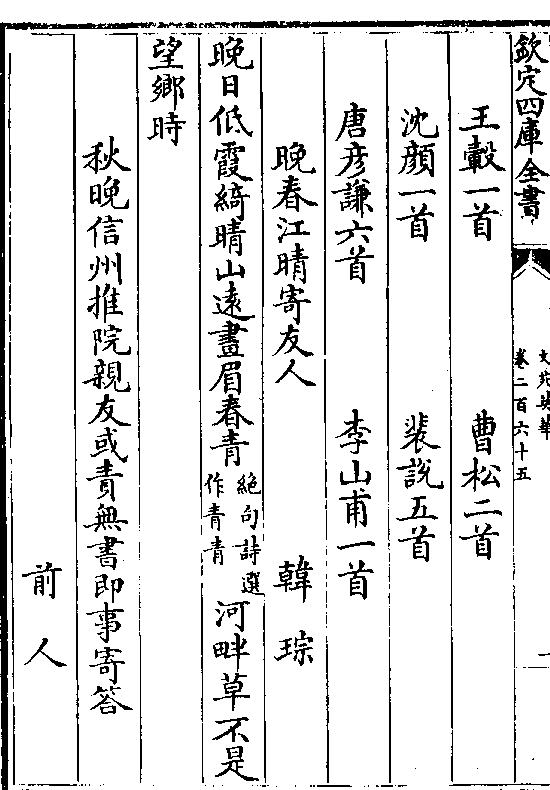 欽定四庫全書
文苑英華
卷二百六十五
一
王轂一首　曹松二首
沈顏一首　裴說五首
唐彥謙六首　李山甫一首
晚春江晴寄友人　韓琮
晚日低霞綺晴山遠畫眉春青絕句詩選作青青河畔草不是
望鄉時
秋晚信州推院親友或責無書即事寄答
前人